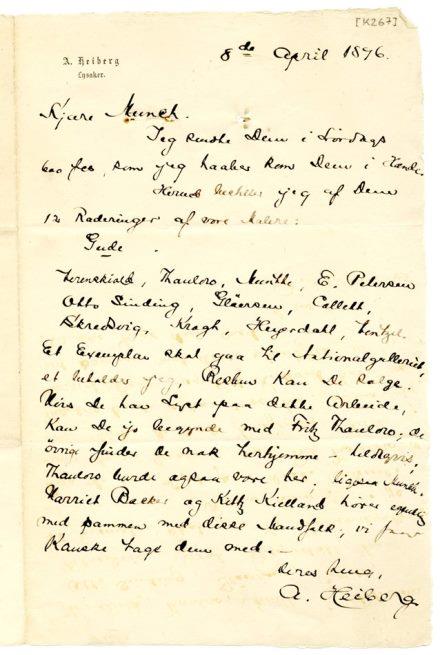 [K267]
A. Heiberg
Lysaker.
8de April 1896.
Kjære Munch.
Jeg sendte Dem i Lördags
600 fcs, som jeg haaber kom Dem i Hænde.
Herved bestiller jeg af Dem
12 Raderinger af vore Malere:
Gude.
Werenskiold, Thaulow, Munthe, E. Petersen
Otto Sinding, Gløersen, Collett,
Skredsvig, Krogh, Heyerdahl, Wentzel.
Et Exemplar skal gaa til Nationalgalleriet,
et beholder jeg, Resten kan De sælge.
Hvis De har Lyst paa dette Arbeide,
kan De jo begynde med Fritz Thaulow; de
övrige finder De nok herhjemme – heldigvis,
Thaulow burde ogsaa være her, ligesaa Munthe.
Harriet Backer og Kitty Kielland hører egentlig
med sammen med disse Mandfolk, vi faar
Kanske tage dem med. –
Deres heng.
A. Heiberg